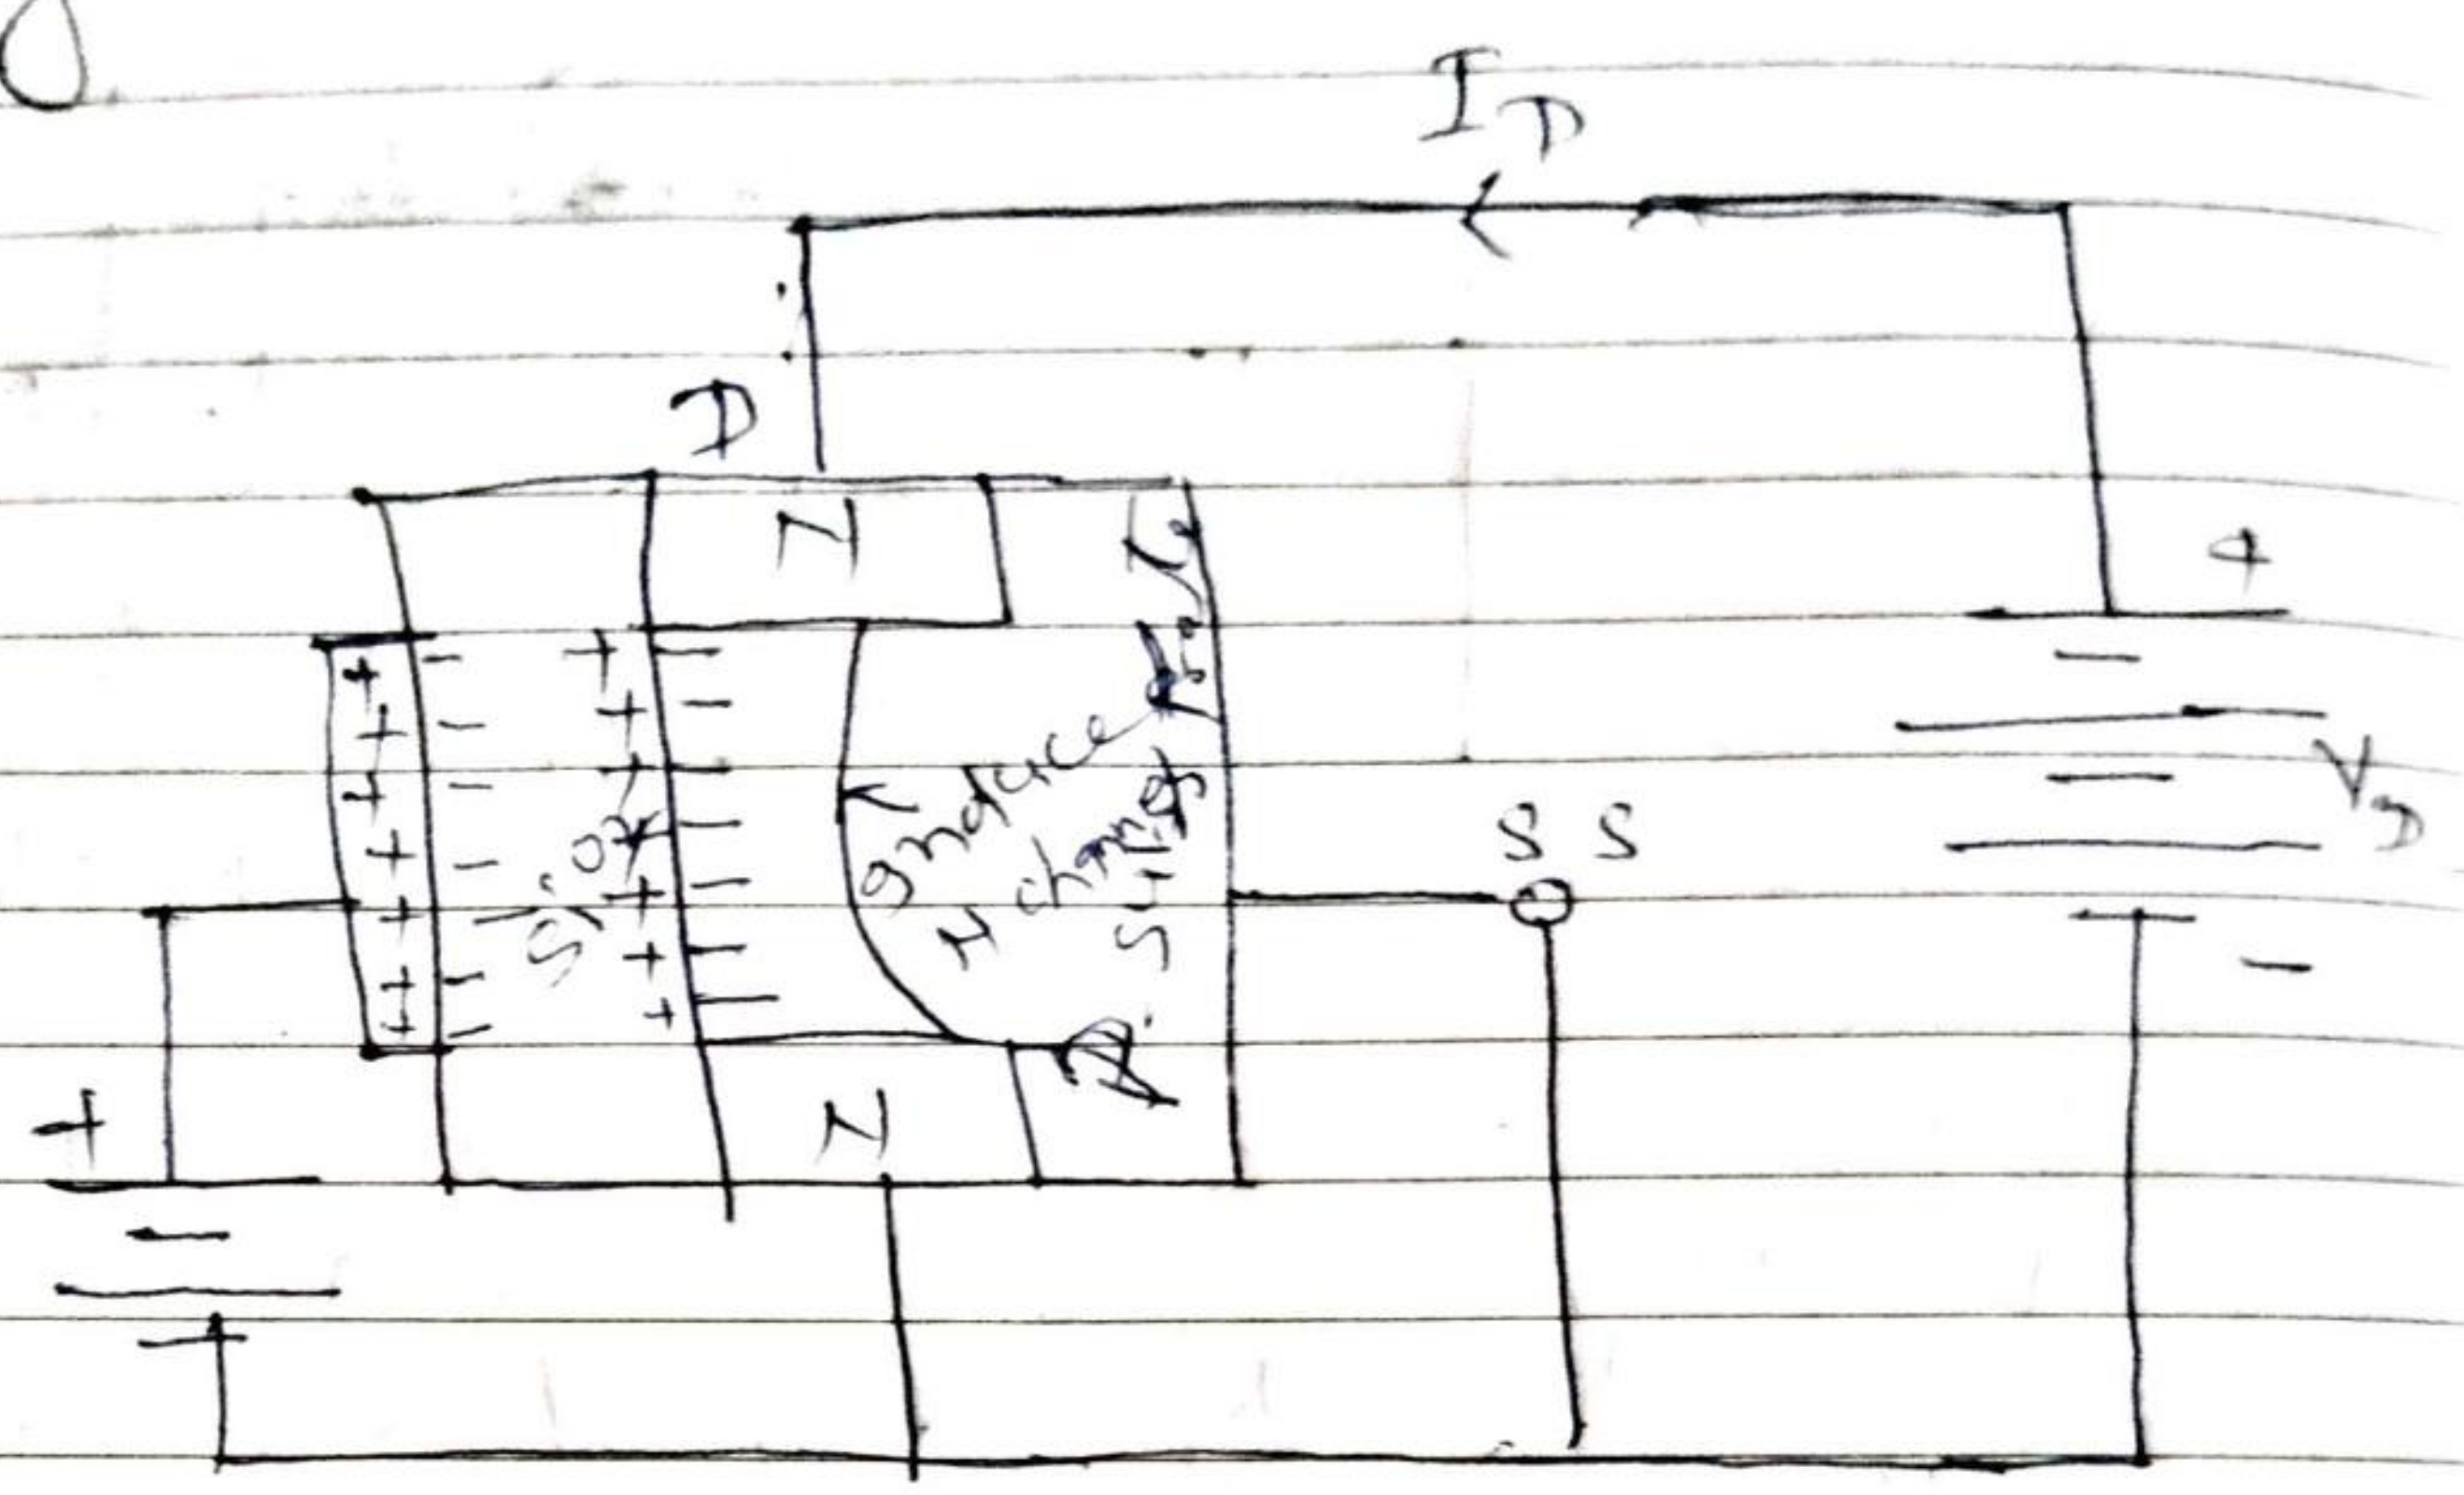 I_D
D
N
+
+ + + + + + +
- - - - - - -
SiO2
+ + + + + + +
- - - - - - -
induce
N channel
P. Substrate
SS
V_D
-
N
+